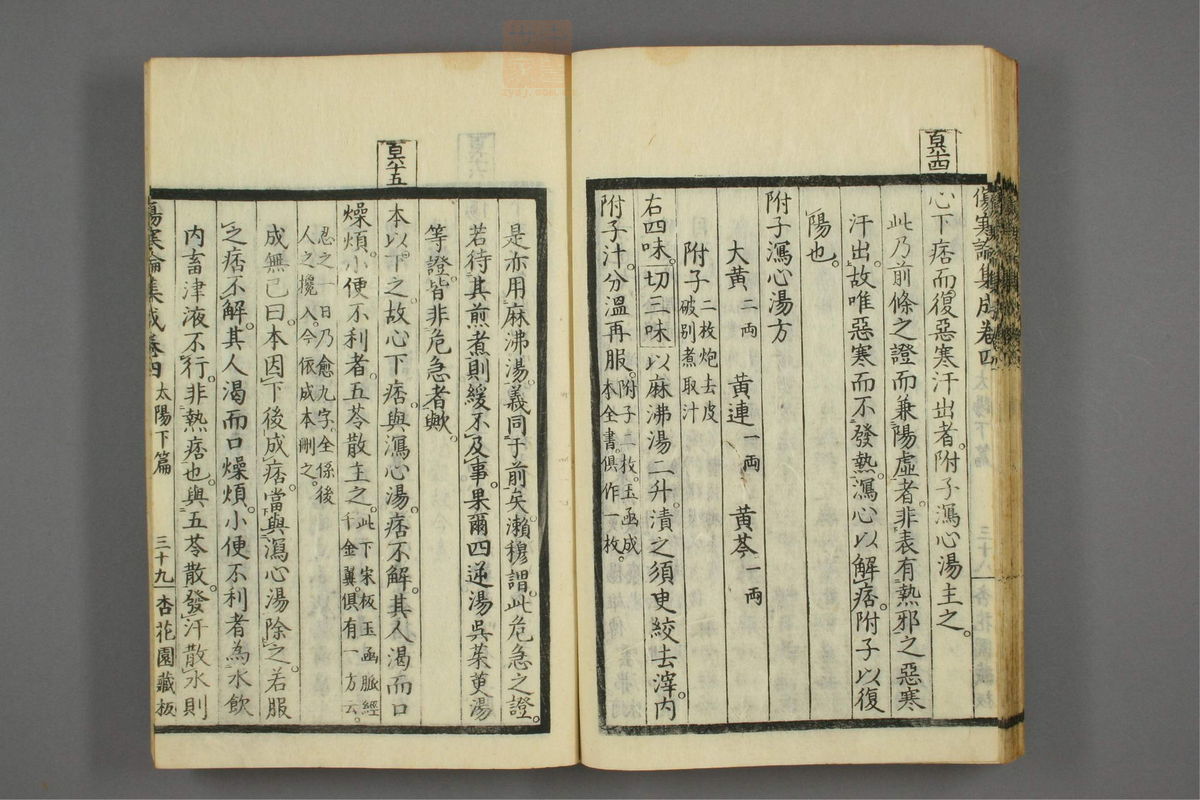 傷寒論集成卷四
百六十四
心下痞而復惡寒汗出者附子瀉心湯主之。
此乃前條之證而兼陽虛者非表有熱邪之惡寒
汗出故唯惡寒而不發熱瀉心以解痞附子以復
陽也。
附子瀉心湯方
大黄二両 黄連一両 黄芩一両
附子二枚炮去皮
破别煮取汁
右四味切三味以麻沸湯二升漬之須臾絞去滓内
附子汁分溫再服。附子二枚玉函成
本全書俱作一枚。
是亦用麻沸湯。義同于前矣瀨穆謂此危急之證。
若待其煎煮則緩不及事。果爾四逆湯吳茱萸湯
等證皆非危急者歟。
百六十五
本以下之故心下痞與瀉心湯痞不解其人渴而口
燥煩小便不利者五苓散主之。此下宋板玉函脈經
千金翼俱有一方云。
忍之一日乃愈九字全係後
人之攙入今依成本刪之。
成無己曰本因下後成痞當與瀉心湯除之若服
之痞不解其人渴而口燥煩小便不利者為水飲
内畜津液不行非熱痞也與五苓散發汗散水則
傷寒論集成卷四 太陽下篇 三十九 杏花園藏板